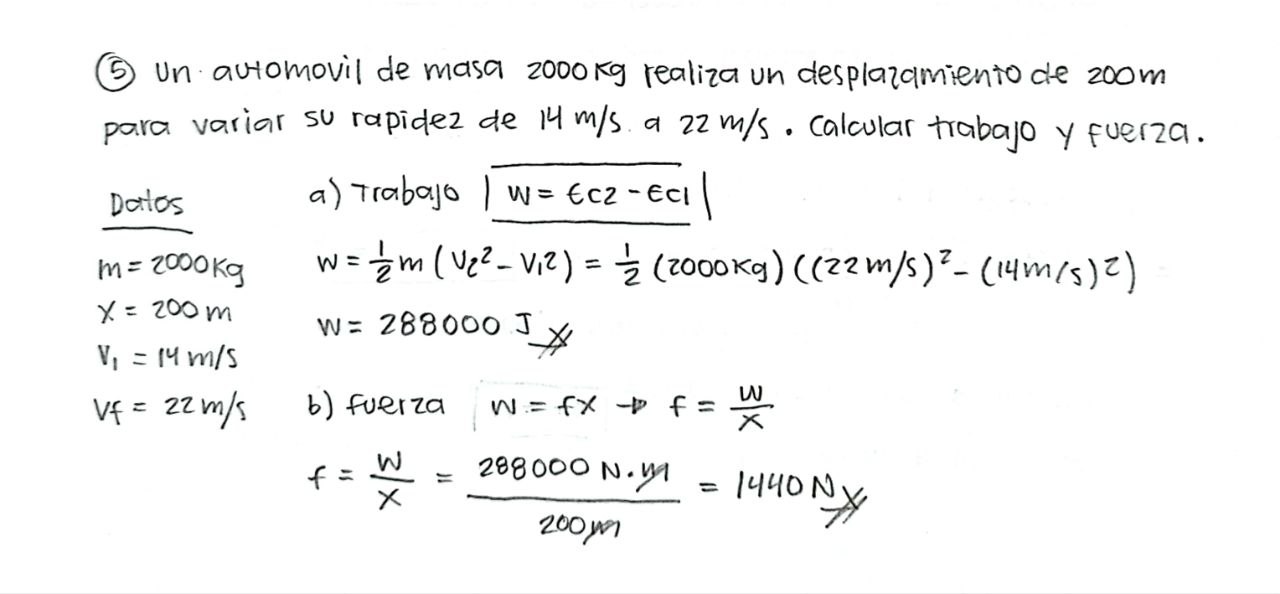 ⑤ Un automovil de masa 2000 kg realiza un desplazamiento de 200 m
para variar su rapidez de 14 m/s a 22 m/s. Calcular trabajo y fuerza.
Datos
m = 2000 kg
X = 200 m
V₁ = 14 m/s
Vf = 22 m/s
a) Trabajo | W = Ec2 - Ec1 |
W = 1/2 m (V₂² - V₁²) = 1/2 (2000 kg) ((22 m/s)² - (14 m/s)²)
W = 288000 J
b) fuerza W = fX → f = W/X
f = W/X = 288000 N.m / 200 m = 1440 N